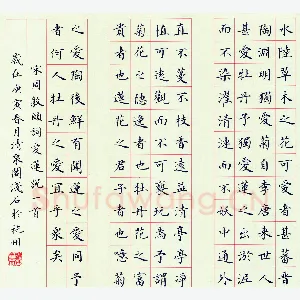 水陸草木之花可愛者甚蕃晉
陶淵明獨愛菊自李唐來世人
甚愛牡丹予獨愛蓮之出淤泥
而不染濯清漣而不妖中通外
直不蔓不枝香遠益清亭亭淨
植可遠觀而不可褻玩焉予謂
菊花之隱逸者也牡丹花之富
貴者也蓮花之君子者也噫菊
之愛陶後鮮有聞蓮之愛同予
者何人牡丹之愛宜乎眾矣
宋周敦頤詞愛蓮說一首
歲在庚寅春月清泉閣淺石於杭州